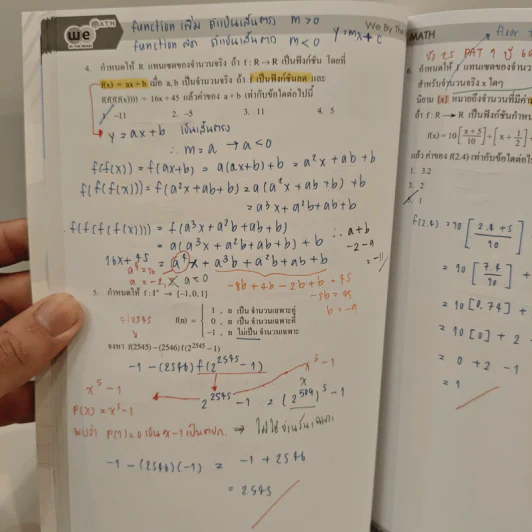 we MATH
function เพิ่ม ถ้าเป็นเส้นตรง m > 0
function ลด ถ้าเป็นเส้นตรง m < 0
y = mx + c
We By The
4. กำหนดให้ R แทนเซตของจำนวนจริง ถ้า f : R → R เป็นฟังก์ชัน โดยที่
f(x) = ax + b เมื่อ a, b เป็นจำนวนจริง ถ้า f เป็นฟังก์ชันลด และ
f(f(f(f(x)))) = 16x + 45 แล้วค่าของ a + b เท่ากับข้อใดต่อไปนี้
1. −11 2. −5 3. 11 4. 5
y = ax + b เป็นเส้นตรง
∴ m = a → a < 0
f(f(x)) = f(ax+b) = a(ax+b) + b = a²x + ab + b
f(f(f(x))) = f(a²x + ab + b) = a(a²x + ab + b) + b
= a³x + a²b + ab + b
f(f(f(f(x)))) = f(a³x + a²b + ab + b)
= a(a³x + a²b + ab + b) + b
16x + 45 = a⁴x + a³b + a²b + ab + b
∴ a + b
−2 − 9
= −11
a⁴ = 16
a = −2, 2 a < 0
−8b + 4b − 2b + b = 45
−5b = 45
b = −9
5. กำหนดให้ f : I⁺ → {−1, 0, 1}
f(n) = 1 , n เป็น จำนวนเฉพาะคู่
0 , n เป็น จำนวนเฉพาะคี่
−1 , n ไม่เป็น จำนวนเฉพาะ
5 | 2545
จงหา f(2545) − (2546) f(2²⁵⁴⁵ − 1)
−1 − (2546) f(2²⁵⁴⁵ − 1)
x⁵ − 1
x⁵ − 1
2²⁵⁴⁵ − 1 = (2⁵⁰⁹)⁵ − 1
P(x) = x⁵ − 1
P(1) = 0 x − 1 → ไม่ใช่จำนวนเฉพาะ
−1 − (2546)(−1) = −1 + 2546
= 2545
MATH
floor
ข้อ 25 PAT 1 ปี
กำหนดให้ แทนเซตของจำนวน
สำหรับจำนวนจริง x ใดๆ
นิยาม [x] หมายถึงจำนวนที่มีค่า
ถ้า f : R → R เป็นฟังก์ชันกำหน
f(x) = 10[x+5/10] + [x + 1/2]
แล้ว ค่าของ f(2.4) เท่ากับข้อใดต่อไป
1. 3.2
3. 2
1
f(2.4) = 10[2.4 + 5/10]
= 10[7.4/10] +
= 10[0.74] +
= 10[0] + 2
= 0 + 2 − 1
= 1